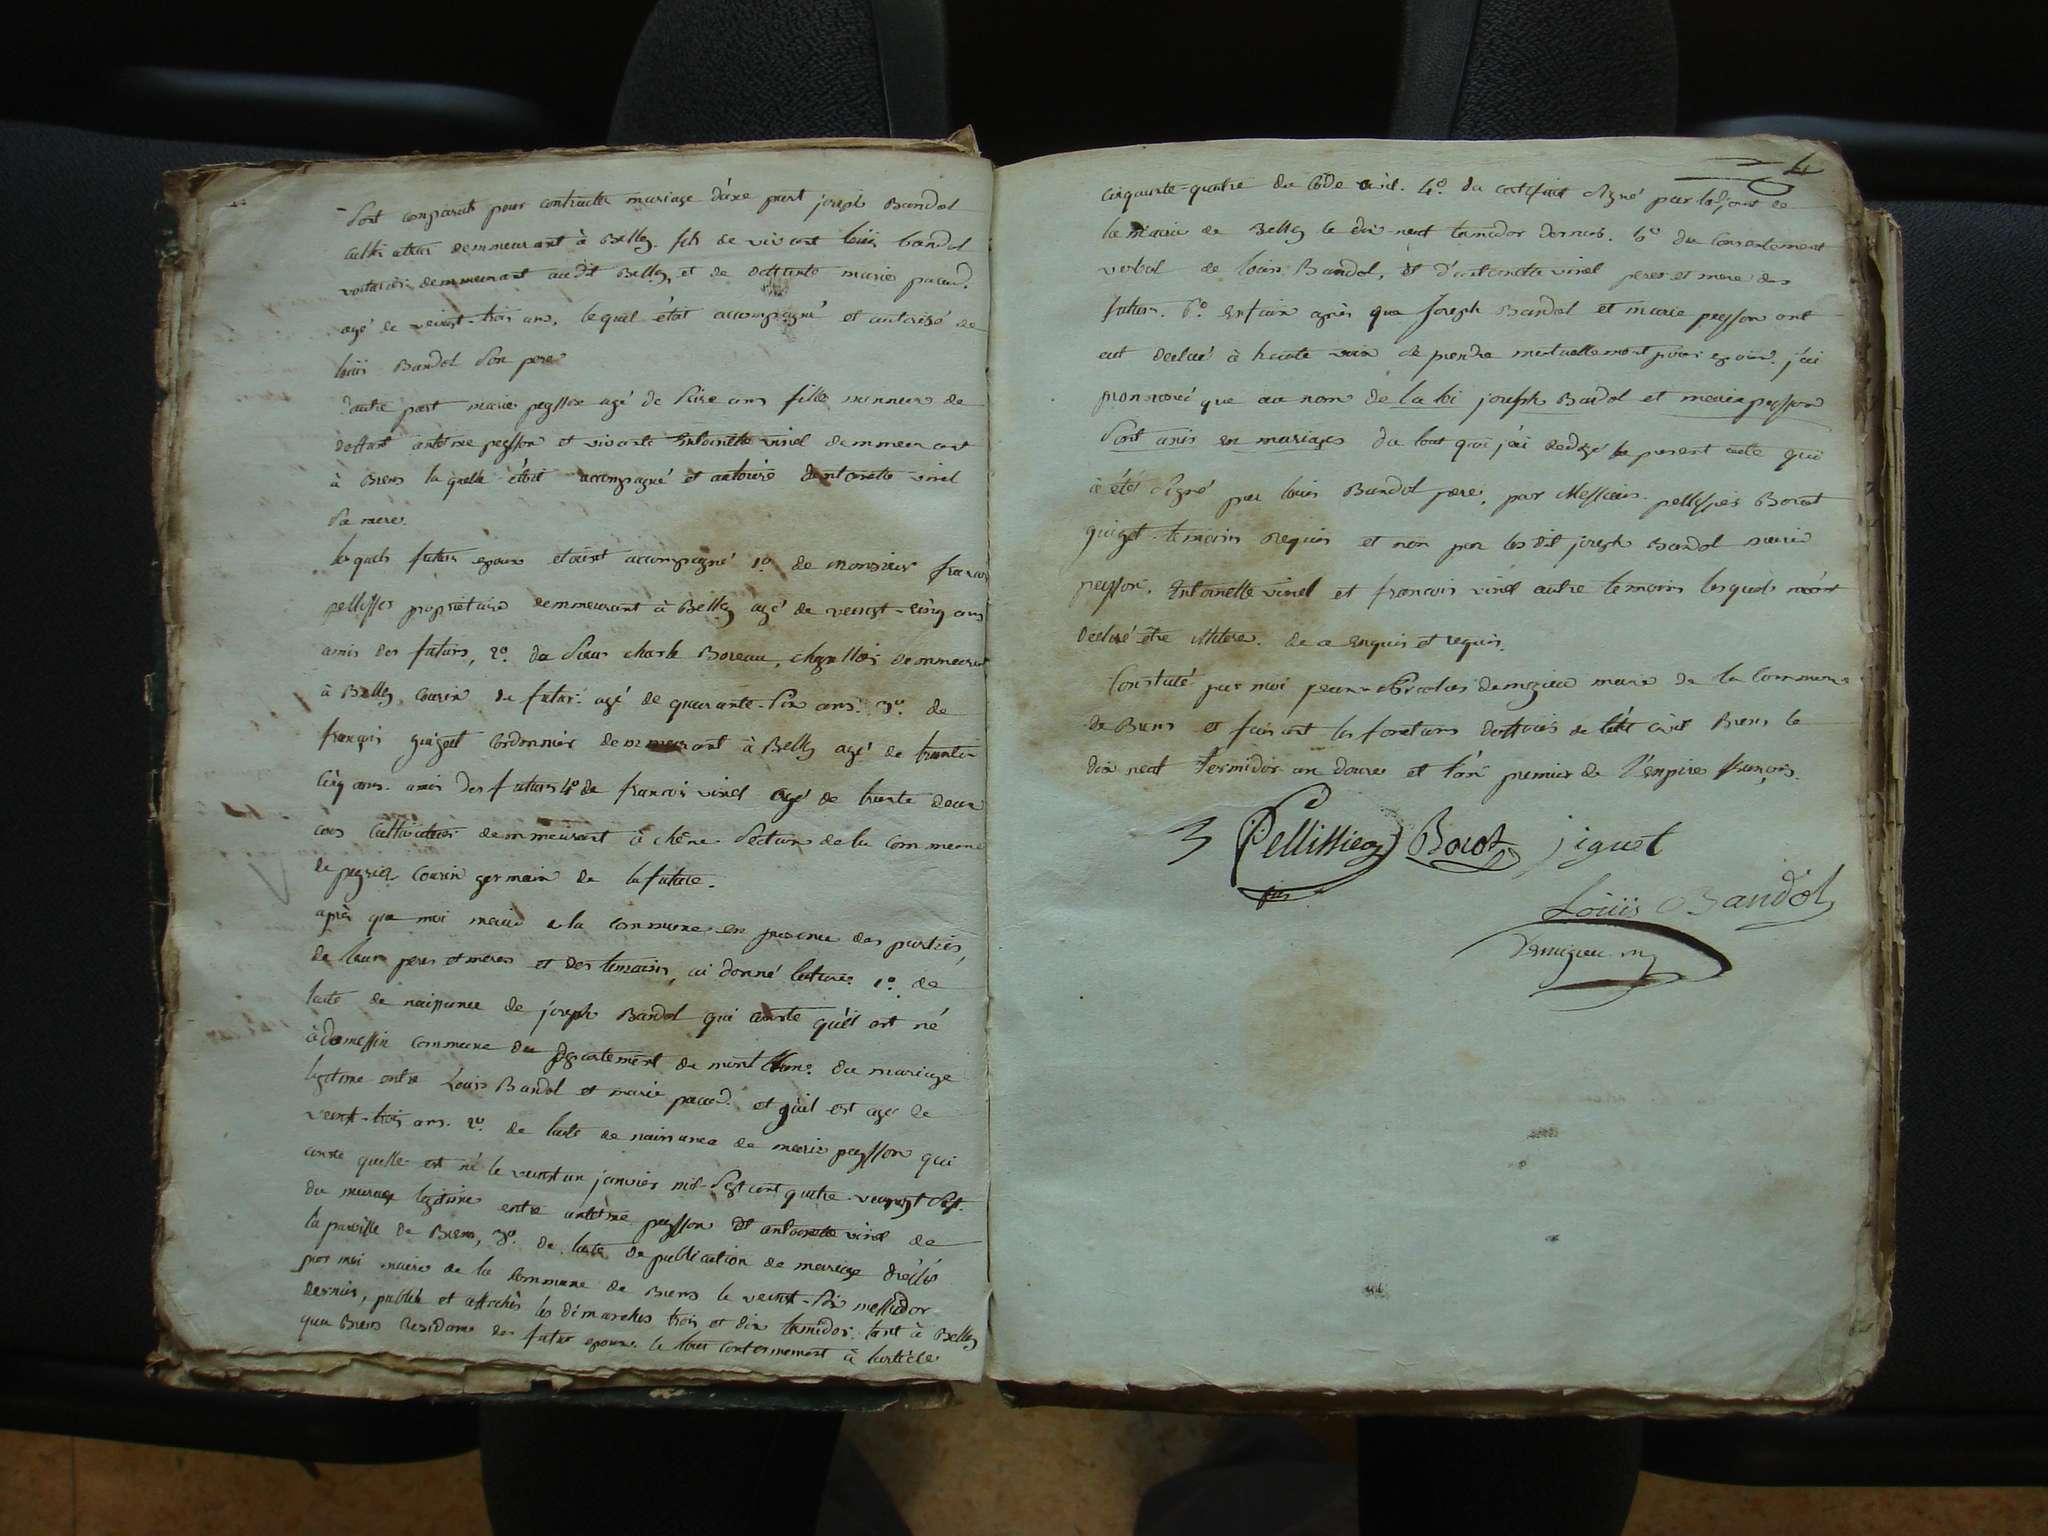 Sont comparuts pour contracter mariage d'une part joseph Bandol
cultivateur demmeurant à Belley fils de vivant loüis bandol
voiturier demmeurant audit Belley, et de deffunte marie pacoud.
agé de veingt-trois ans, lequel étoit accompagné et autorisé de
loüis Bandol son pere
d'autre part marie peysson agé de seize ans fille mineure de
deffunt antoine peysson et vivante antoinette vinel demmeurant
à Brens laquelle étoit accompagné et autorisé dantoinette vinel
sa mere.
lesquels futur epoux etoient accompagné 1º de monsieur francois
pellissier propriétaire demmeurant à Belley agé de veingt-cinq ans
amis des futurs, 2º du sieur charle Boreau, demmeurant
à Belley cousin du futur agé de quarante-six ans. 3º de
françois guiguet cordonnier demmeurant à Belley agé de trente-
cinq ans. amis des futurs 4º de francois vinel agé de trente deux
ans cultivateur demmeurant à chêne section de la commune
de peyrieu cousin germain de la future.
après que moi maire de la commune en presence des parties,
de leurs peres et meres et des temoins, ai donné lecture 1º de
lacte de naissance de joseph Bandol qui conste qu'il est né
à domessin commune du departement du mont blanc du mariage
legitime entre Louis Bandol et marie pacoud et qu'il est agé de
veint-trois ans. 2º de lacte de naissance de marie peysson qui
conste quelle est né le veint un janvier mil-sept cent quatre-veingt sept.
du mariage legitime entre antoine peysson et antoinette vinel de
la paroisse de Brens, 3º de lacte de publication de mariage dressé
par moi maire de la commune de Brens le veint-six messidor
dernier, publié et affichés les dimanches trois et dix termidor tant à Belley
qua Brens residance des futur epoux le tout conformement à larticle
4
cinquante-quatre du code civil. 4º du certificat signé par ladjoint de
la mairie de Belley le dix neuf termidor dernier. 5º du consentement
verbal de louis Bandol, et d'antoinette vinel peres et mere des
futurs. 6º enfain après que Joseph Bandol et marie peysson ont
eut declaré à haute voix de prendre mutuellement pour epoux. j'ai
prononcé que au nom de la loi joseph Bandol et marie peysson
sont unis en mariages du tout quoi j'ai redigé le present acte qui
à été signé par louis Bandol pere, par Messieurs pellissier Borot
guiget temoins requis et non par les dit joseph Bandol marie
peysson, antoinette vinel et francois vinel autre temoins lesquels mont
declaré être illitere. de ce enquis et requis.
Constaté par moi Nicolas demezieu maire de la commune
de Brens et faisant les fonctions dofficier de léta civil Brens le
dix neuf termidor an douze et l'an premier de l'enpire françois.
Pellissier Borot jiguet
fils
Loüis Bandol